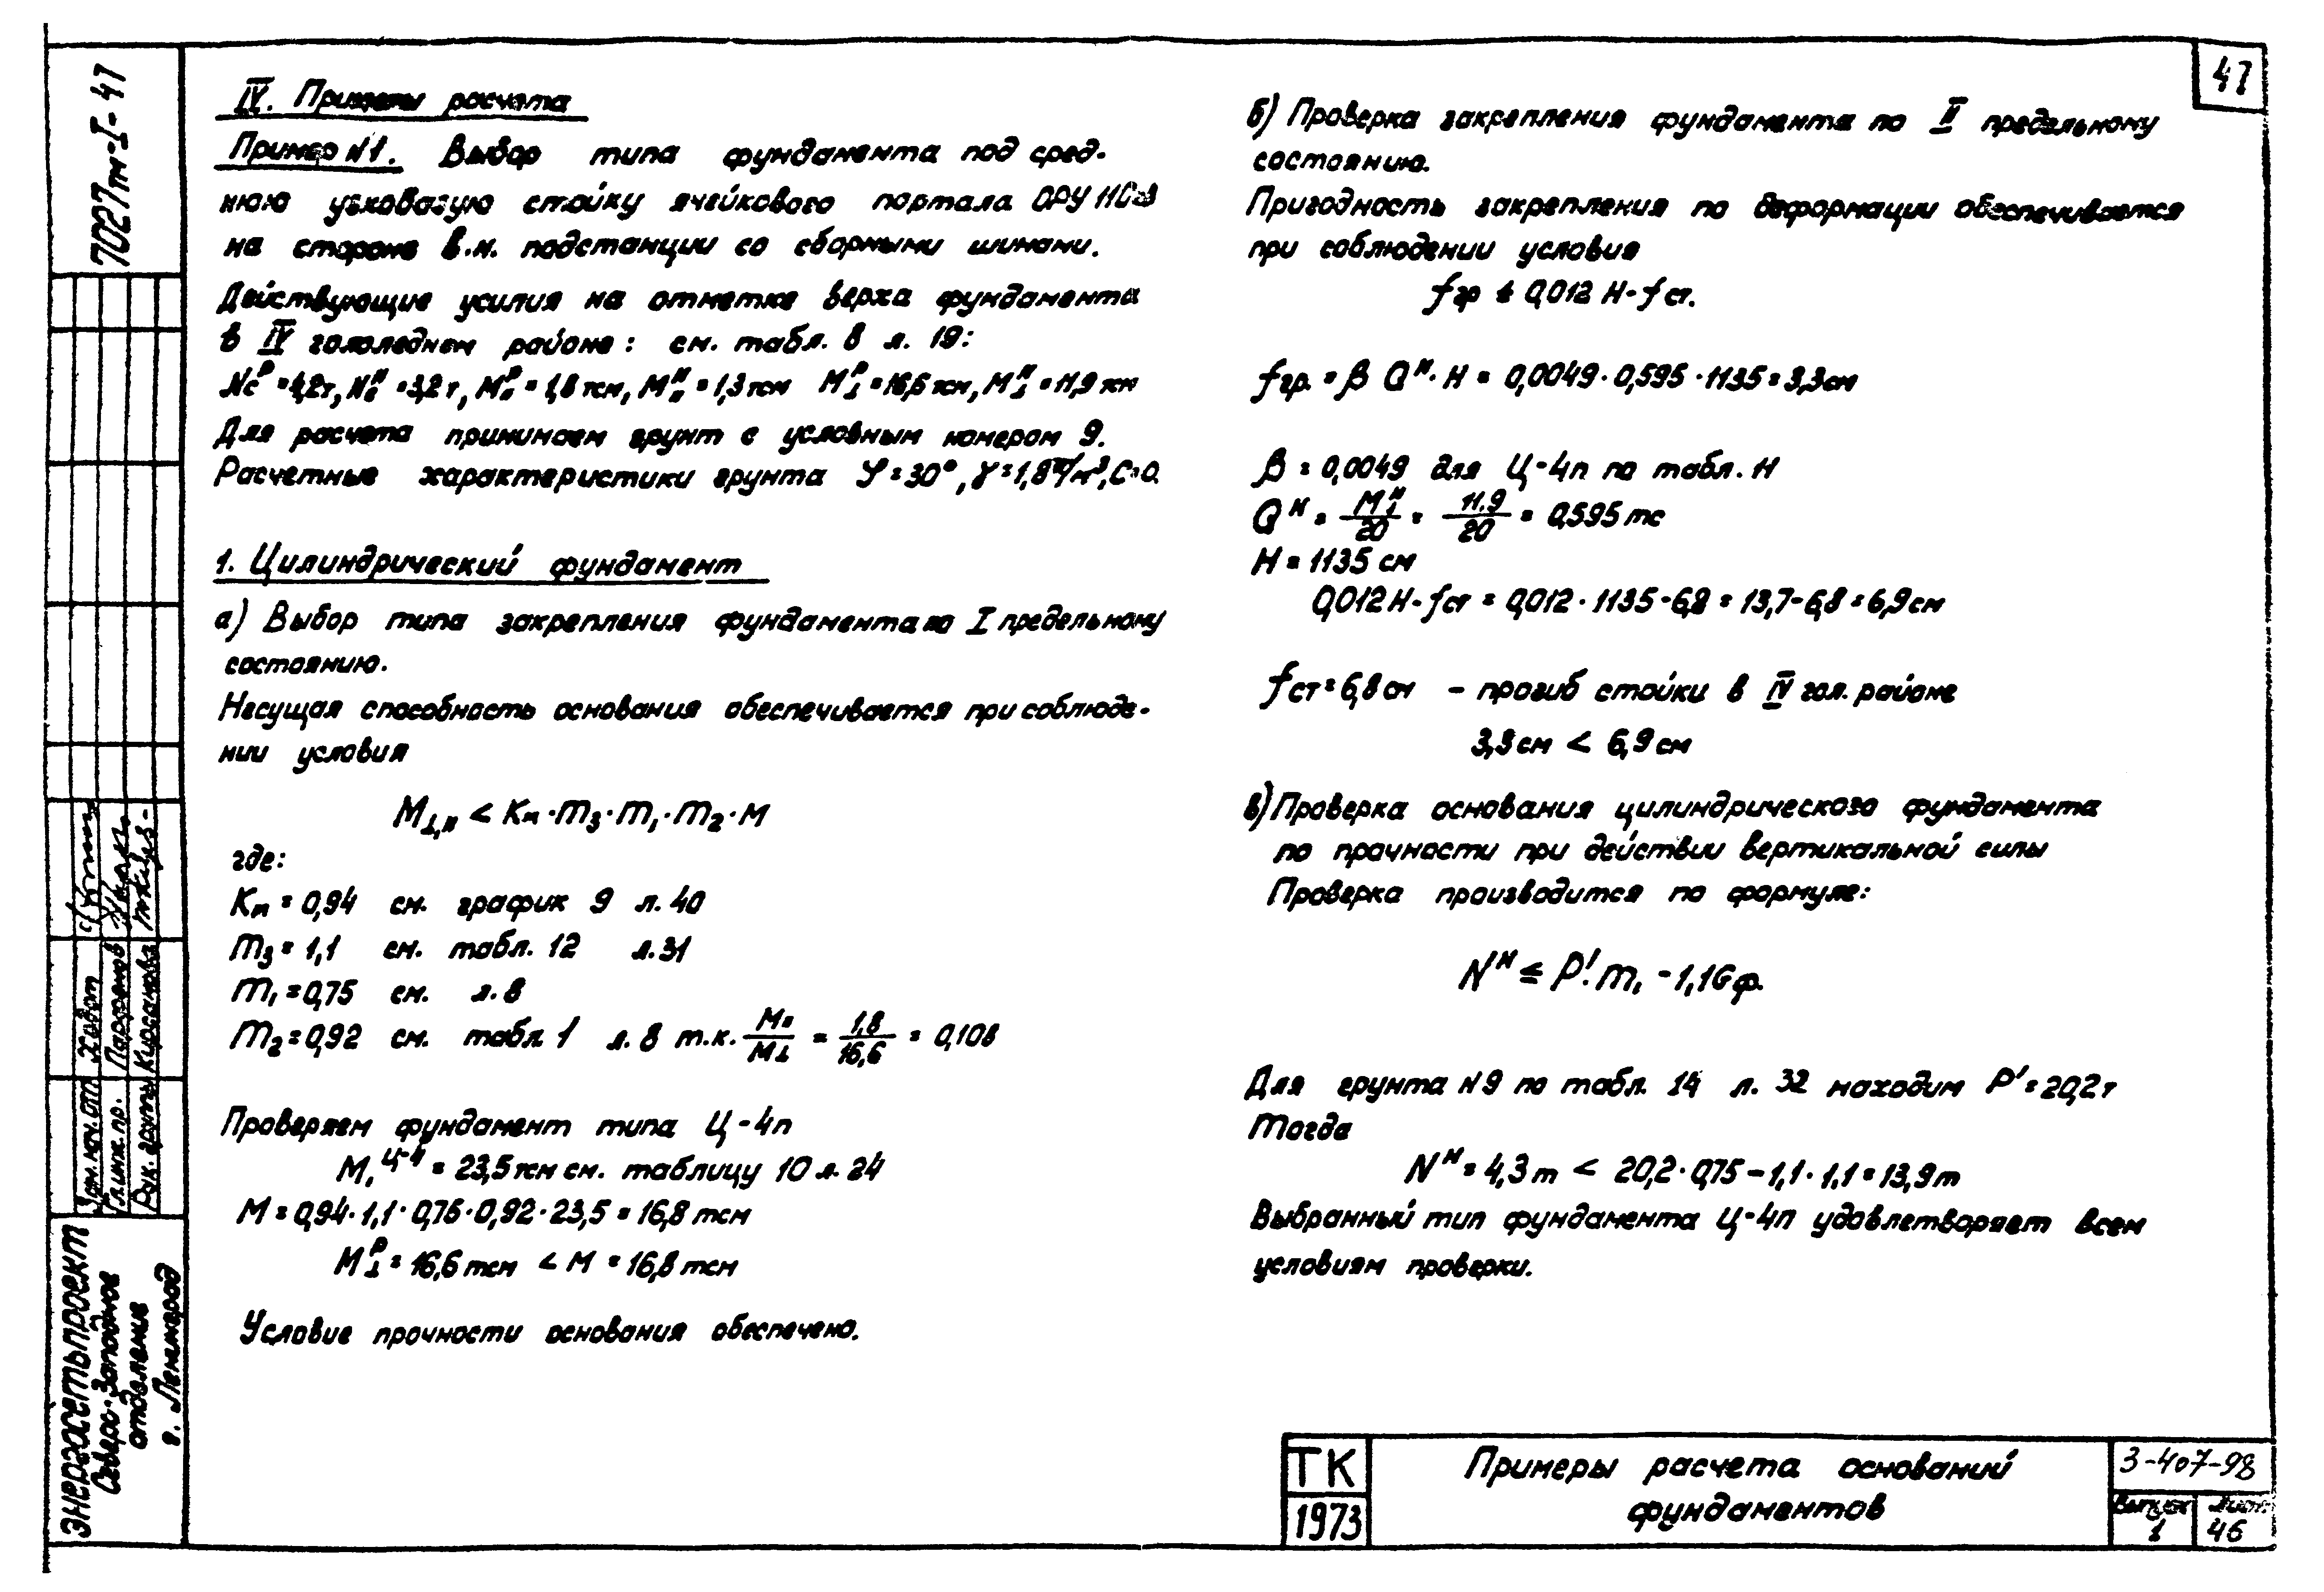 47
7027тм-I-47
IV. Примеры расчета
Пример N1. Выбор типа фундамента под сред-
нюю угловую стойку ячейкового портала ОРУ 110кв
на стороне в.н. подстанции со сборными шинами.
Действующие усилия на отметке верха фундамента
в IV гололедном районе: см. табл. 8 л. 19:
Nсᴾ = 4,2т, Nсᴴ = 3,2т, M"ᴾ = 1,8 тсм, M"ᴴ = 1,3 тсм M⊥ᴾ = 16,6 тсм, M⊥ᴴ = 11,9 тсм
Для расчета принимаем грунт с условным номером 9.
Расчетные характеристики грунта φ = 30°, γ = 1,8 т/м³, С = 0.
1. Цилиндрический фундамент
а) Выбор типа закрепления фундамента по I предельному
состоянию.
Несущая способность основания обеспечивается при соблюде-
нии условия
M⊥,п < Kм · m₃ · m₁ · m₂ · M
где:
Kм = 0,94 см. график 9 л. 40
m₃ = 1,1 см. табл. 12 л. 31
m₁ = 0,75 см. л. 8
m₂ = 0,92 см. табл. 1 л. 8 т.к. M"/M⊥ = 1,8/16,6 = 0,108
Проверяем фундамент типа Ц-4п
M₁ᶣ⁻⁴ = 23,5 тсм см. таблицу 10 л. 24
M = 0,94 · 1,1 · 0,75 · 0,92 · 23,5 = 16,8 тсм
M⊥ᴾ = 16,6 тсм < M = 16,8 тсм
Условие прочности основания обеспечено.
б) Проверка закрепления фундамента по II предельному
состоянию.
Пригодность закрепления по деформации обеспечивается
при соблюдении условия
fгр ≤ 0,012 H - fст.
fгр. = β Qᴴ · H = 0,0049 · 0,595 · 1135 = 3,3 см
β = 0,0049 для Ц-4п по табл. 11
Qᴴ = M⊥ᴴ/20 = 11.9/20 = 0,595 тс
H = 1135 см
0,012 H - fст = 0,012 · 1135 - 6,8 = 13,7 - 6,8 = 6,9 см
fст = 6,8 см - прогиб стойки в IV гол. районе
3,3 см < 6,9 см
в) Проверка основания цилиндрического фундамента
по прочности при действии вертикальной силы
Проверка производится по формуле:
Nᴴ ≤ P' · m₁ - 1,1 Gф.
Для грунта N9 по табл. 14 л. 32 находим P' = 20,2т
Тогда
Nᴴ = 4,3 т < 20,2 · 0,75 - 1,1 · 1,1 = 13,9 т
Выбранный тип фундамента Ц-4п удовлетворяет всем
условиям проверки.
Зам. нач. отп Хобот
Гл. инж. пр. Парфенов
Рук. группы Кирсанова
ЭНЕРГОСЕТЬПРОЕКТ
Северо-Западное
отделение
г. Ленинград
ТК
1973
Примеры расчета оснований
фундаментов
3-407-98
Выпуск Лист
1 46